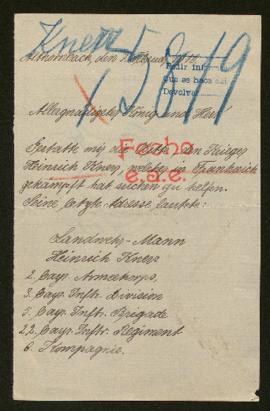 Knerr 15819
den
Pedir inform
Que se haca
Devolver
Allergnädigster König und Herr!
Gestatte mir die Bitte, den Krieger
Heinrich Knerr, welcher in Frankreich
gekämpft hat suchen zu helfen.
Seine letzte Adresse lautete:
Fecho
e.s.e.
Landwehr-Mann
Heinrich Knerr
2. Bayr. Armeekorps,
3. Bayr. Inftr. Division
5. Bayr. Inftr. Brigade
22. Bayr. Inftr. Regiment
6. Kompagnie.